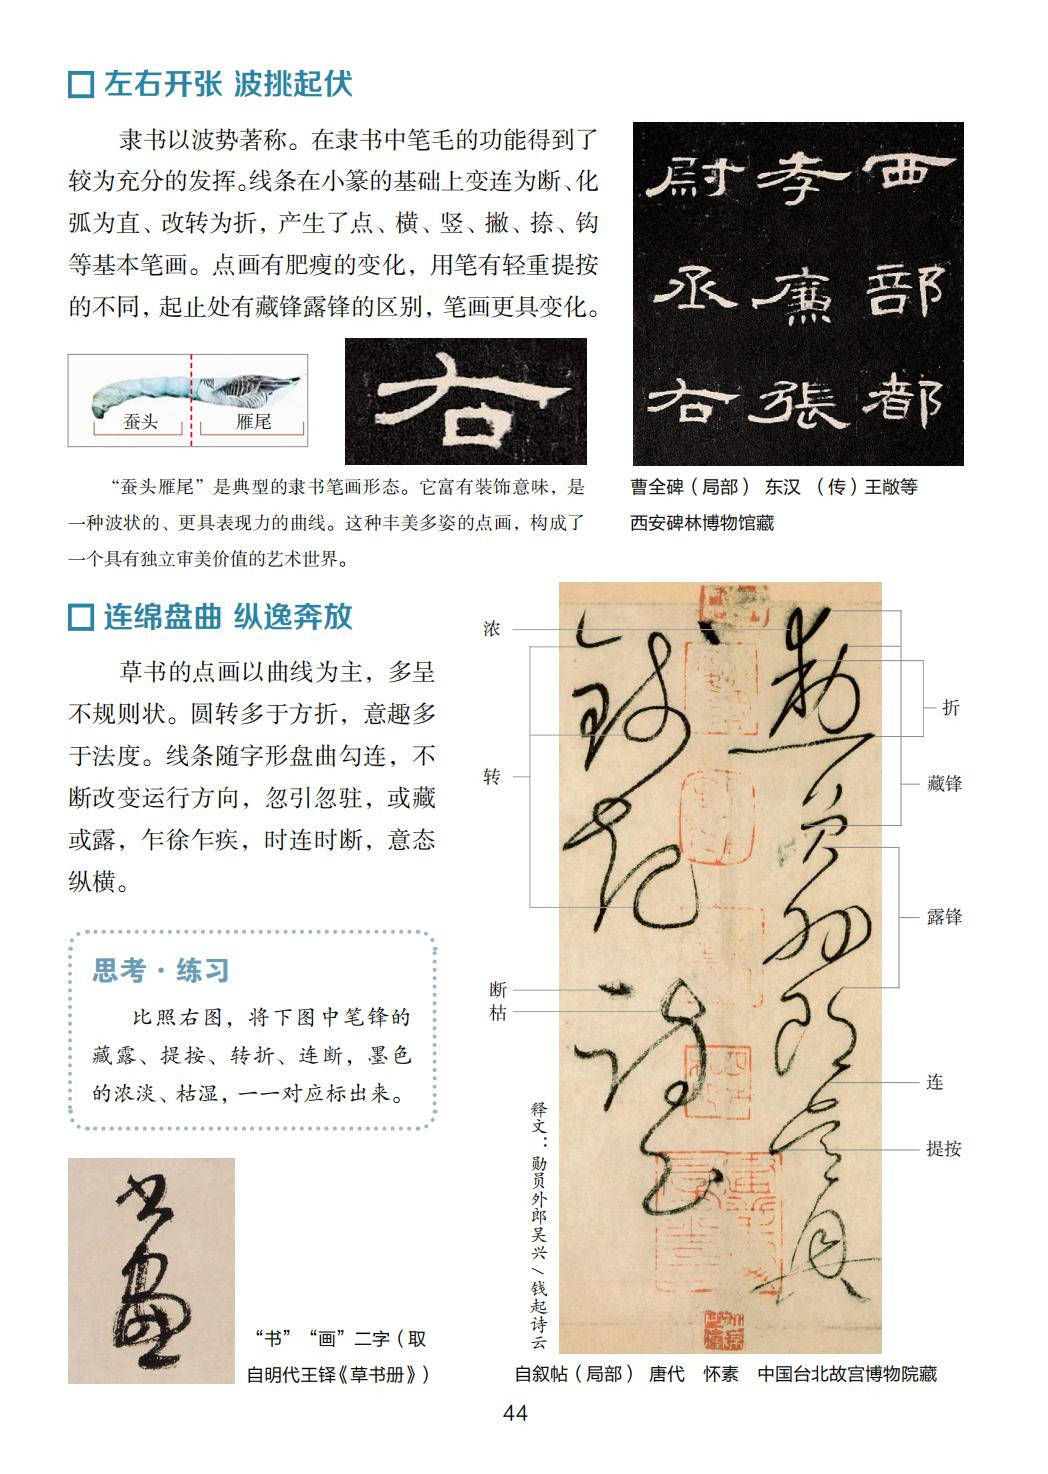 左右开张 波挑起伏
隶书以波势著称。在隶书中笔毛的功能得到了
较为充分的发挥。线条在小篆的基础上变连为断、化
弧为直、改转为折，产生了点、横、竖、撇、捺、钩
等基本笔画。点画有肥瘦的变化，用笔有轻重提按
的不同，起止处有藏锋露锋的区别，笔画更具变化。
蚕头 雁尾
右
“蚕头雁尾”是典型的隶书笔画形态。它富有装饰意味，是
一种波状的、更具表现力的曲线。这种丰美多姿的点画，构成了
一个具有独立审美价值的艺术世界。
西部都
孝廉張
尉丞右
曹全碑（局部） 东汉 （传）王敞等
西安碑林博物馆藏
连绵盘曲 纵逸奔放
草书的点画以曲线为主，多呈
不规则状。圆转多于方折，意趣多
于法度。线条随字形盘曲勾连，不
断改变运行方向，忽引忽驻，或藏
或露，乍徐乍疾，时连时断，意态
纵横。
思考·练习
比照右图，将下图中笔锋的
藏露、提按、转折、连断，墨色
的浓淡、枯湿，一一对应标出来。
書畫
“书”“画”二字（取
自明代王铎《草书册》）
浓
转
断
枯
折
藏锋
露锋
连
提按
释文：勋员外郎吴兴/钱起诗云
自叙帖（局部） 唐代 怀素 中国台北故宫博物院藏
44